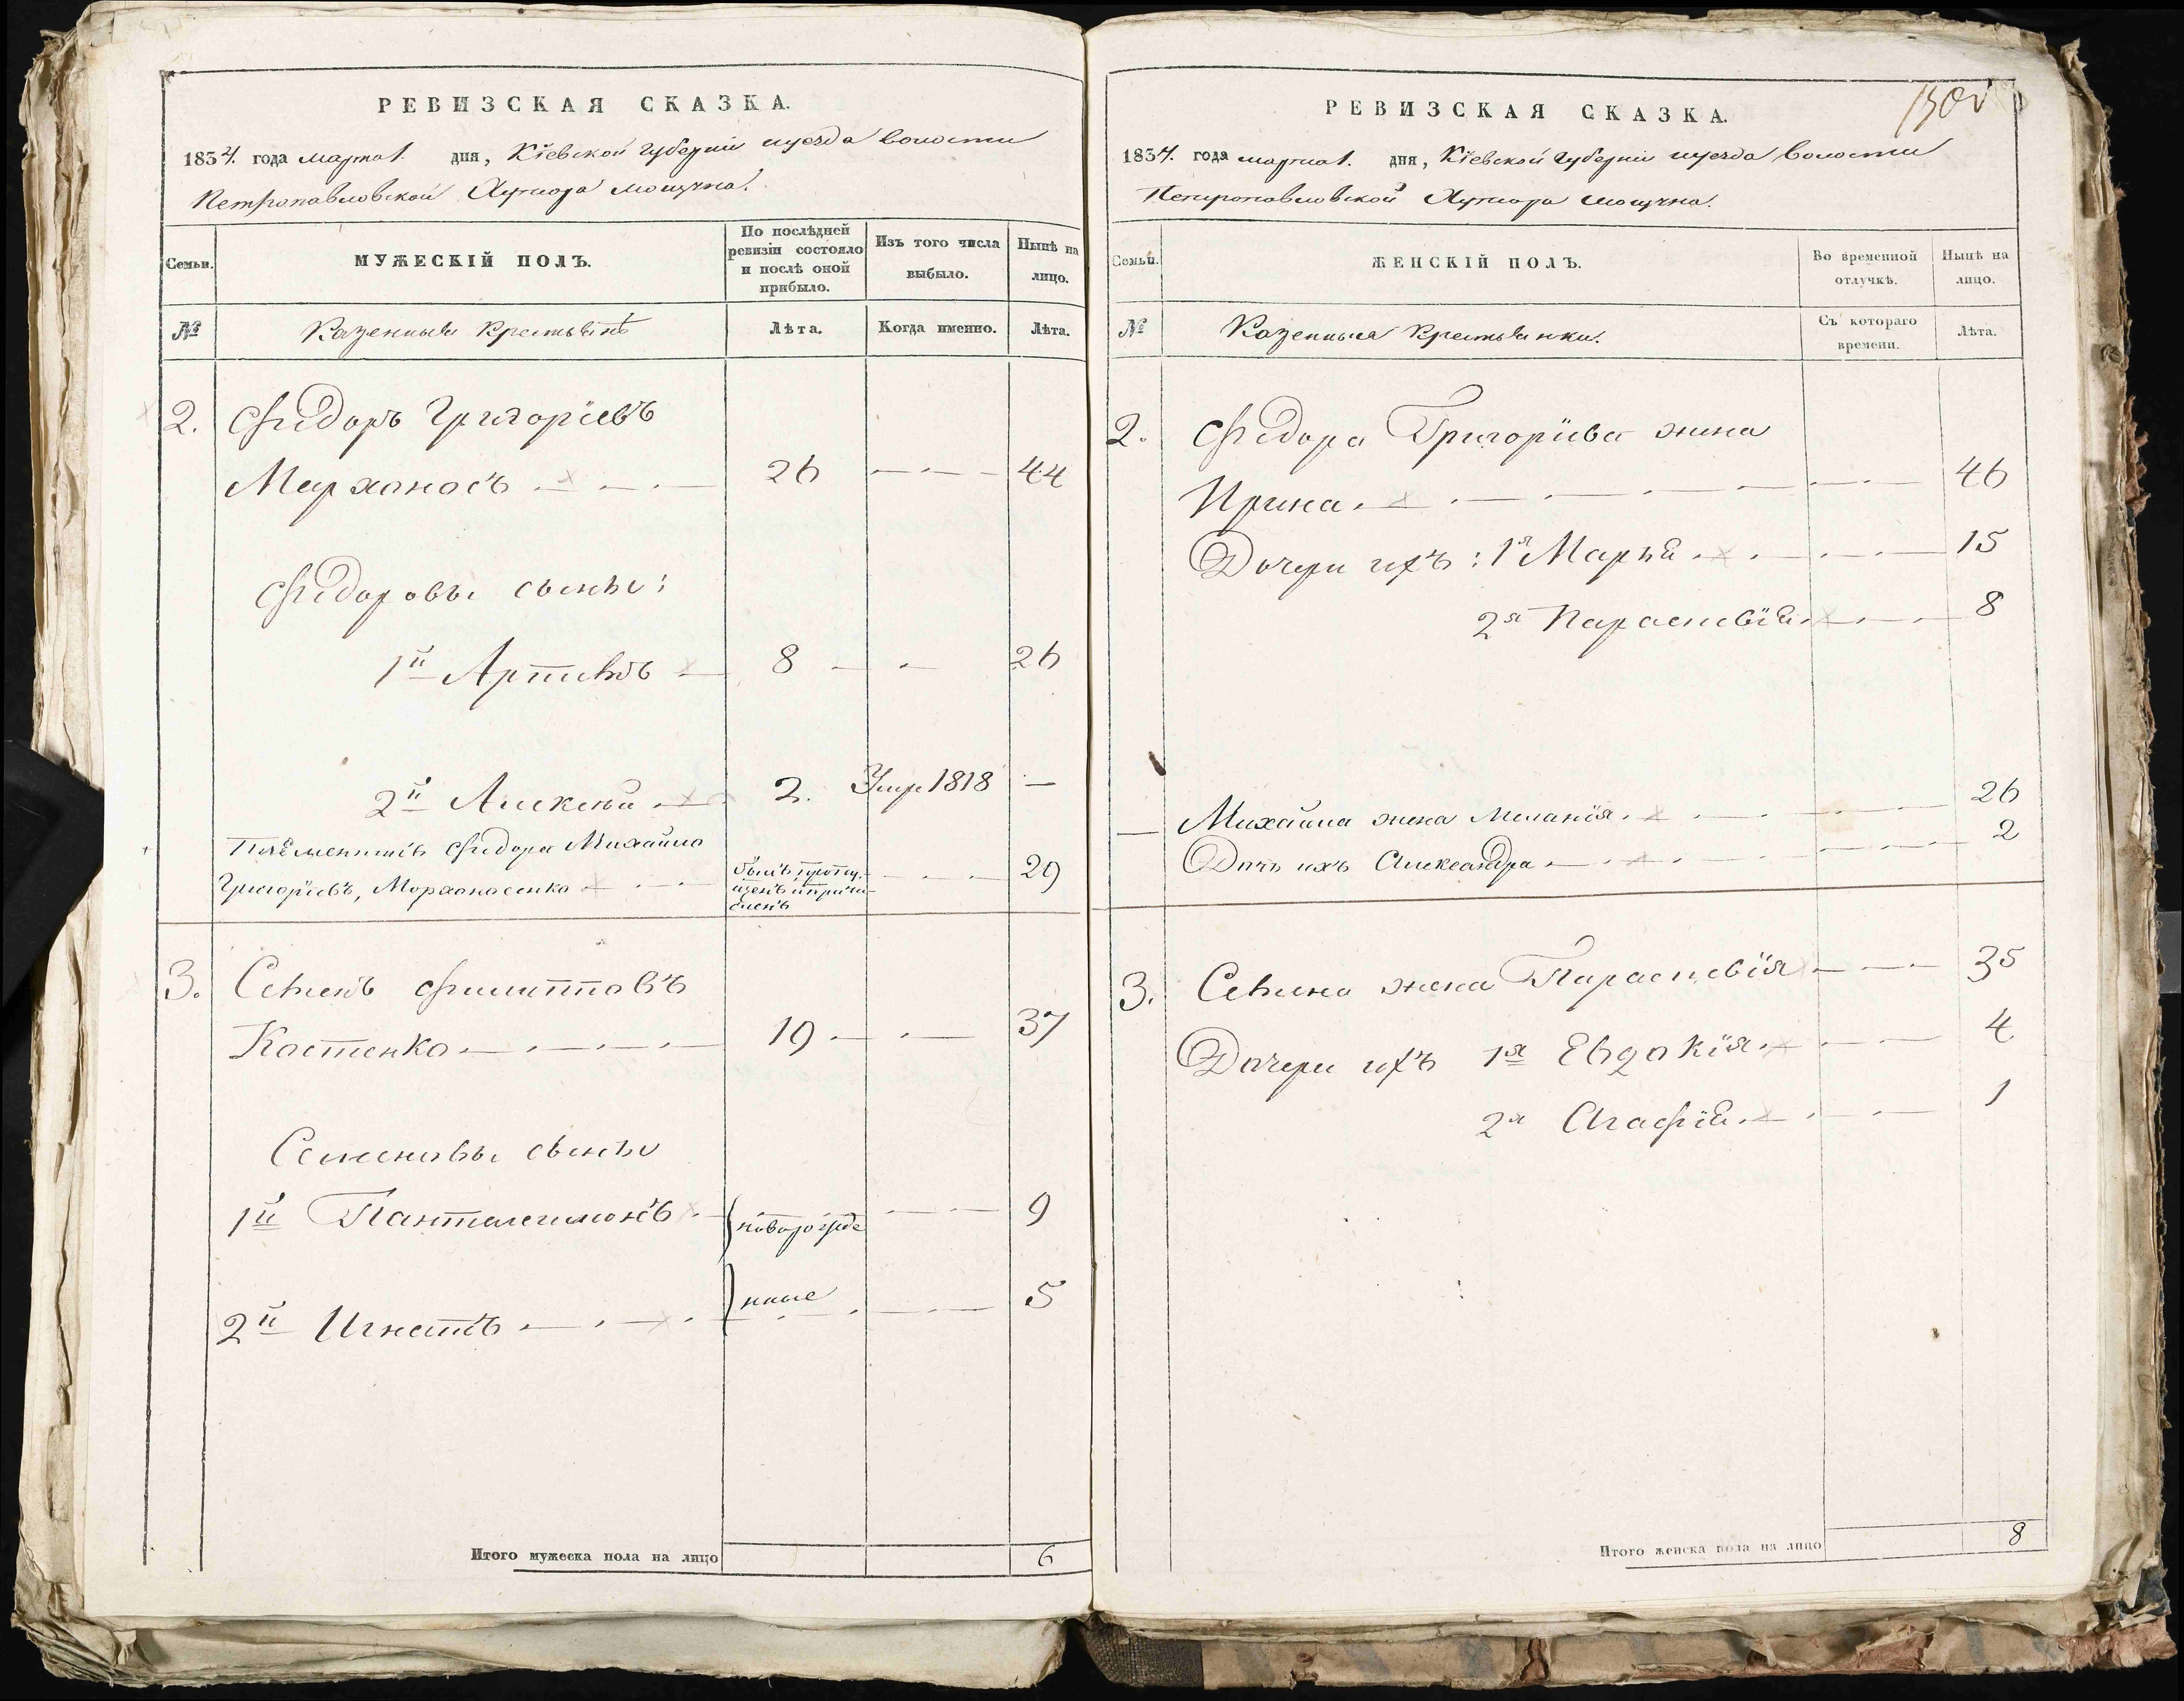 РЕВИЗСКАЯ СКАЗКА.
1834. года марта 1. дня, Кіевской Губерніи иуезда волости
Петропавловской Хутора Мощуна.
Семьи.
МУЖЕСКІЙ ПОЛЪ.
По послѣдней ревизіи состояло и послѣ оной прибыло.
Изъ того числа выбыло.
Нынѣ на лицо.
№
Казенныя Крестьянѣ
Лѣта.
Когда именно.
Лѣта.
2. Фѣдоръ Григоріевъ
Мархоносъ 26 44
Фѣдоровы сынъи:
1й Артемъ 8 26
2й Алексѣй 2. Умр 1818 —
Племенникъ Фѣдора Михайло
Григоріевъ, Морхоносенко былъ пропу- 29
щенъ и причи-
сленъ
3. Семенъ Филипповъ
Костенко 19 37
Семеновы сынъи
1й Пантелеимонъ новорожде 9
2й Игнатъ нные 5
Итого мужеска пола на лицо 6
1501
РЕВИЗСКАЯ СКАЗКА.
1834. года марта 1. дня, Кіевской Губерніи иуезда волости
Петропавловской Хутора Мощуна.
Семьи.
ЖЕНСКІЙ ПОЛЪ.
Во временной отлучкѣ.
Нынѣ на лицо.
№
Казенныя Крестьянки.
Съ котораго времени.
Лѣта.
2. Фѣдора Григоріева жена
Ирина 46
Дочери ихъ: 1я Марья 15
2я Параскевія 8
Михайла жена Меланія 26
Дочь ихъ Александра 2
3. Семена жена Параскевія 35
Дочери ихъ 1я Евдокія 4
2я Агафія 1
Итого женска пола на лицо 8